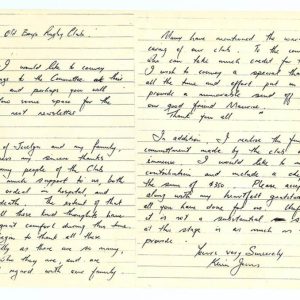 Old Boys Rugby Club.
I would like to convey
to the Committee at this
and perhaps you will
some space for the
next newsletter
of Evelyn and my family,
my sincere thanks
many people of the Club
much support to us both
ordeal in hospital, and
death. The extent of that
all those kind thoughts have
comfort during this time.
began to thank all these
as there are so many,
who they are, and are
regard with our family
Many have mentioned the
caring of our club. To the
who can take much credit for
I wish to convey a special
all the time and effort put
provide a memorable send off
our good friend Maurice.
"Thank you all"
In addition I realise the
commitment made by the club
I would like to
contribution and include a
the sum of $350 Please
along with my heartfelt gratitude
all you have done for me.
it is not a substantial
at this stage is as much as
provide.
Yours very Sincerely